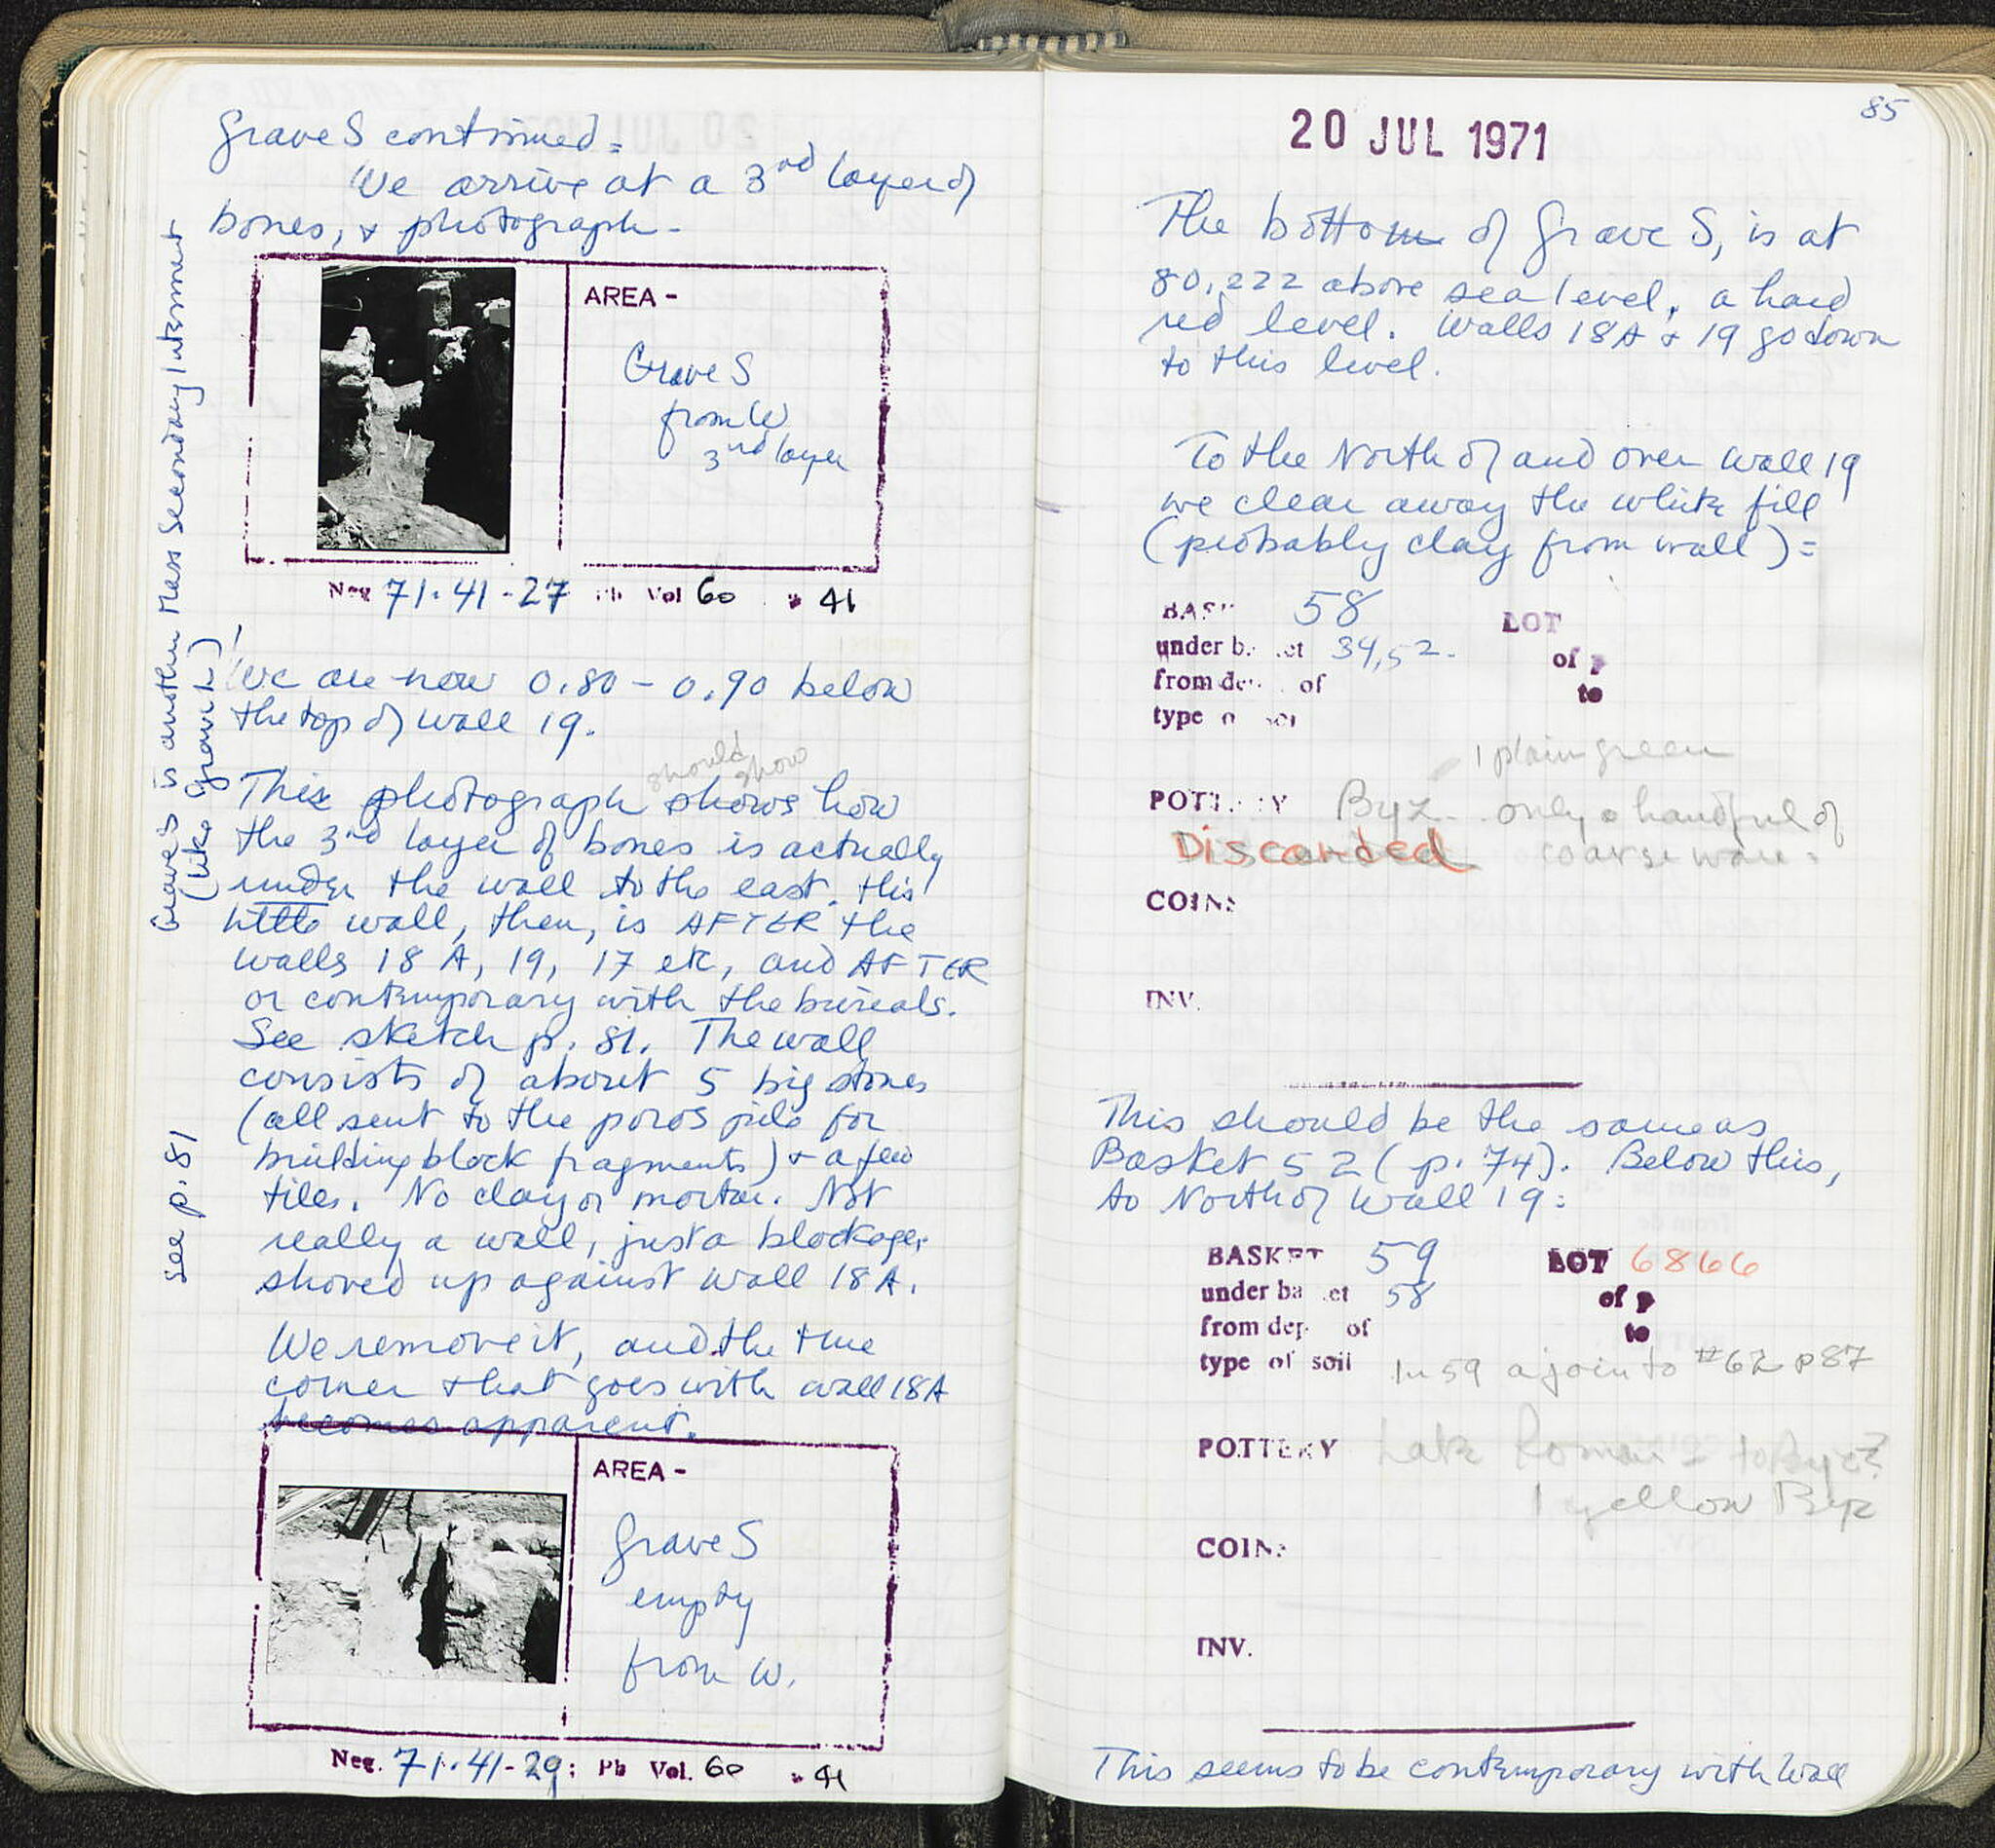 Grave S continued =
We arrive at a 3rd layer of
bones, & photograph -
AREA -
Grave S
from W
3rd layer
Neg 71.41-27 Ph Vol 60 41
We are now 0.80 - 0.90 below
the top of wall 19.
should show
This photograph shows how
the 3rd layer of bones is actually
under the wall to the east. This
little wall, then, is AFTER the
walls 18 A, 19, 17 etc, and AFTER
or contemporary with the burials.
See sketch p. 81. The wall
consists of about 5 big stones
(all sent to the poros pile for
building block fragments) + a few
tiles. No clay or mortar. Not
really a wall, just a blockage,
shoved up against wall 18 A.
We remove it, and the true
corner that goes with wall 18A
becomes apparent.
AREA -
Grave S
empty
from W.
Neg. 71.41-29; Ph Vol. 60 41
Grave S is another Mass Secondary Interment
(like Grave H)!
See p. 81
85
20 JUL 1971
The bottom of Grave S, is at
80,222 above sea level, a hard
red level. Walls 18A & 19 go down
to this level.
To the North of and over wall 19
we clear away the white fill
(probably clay from wall) =
BAS 58 LOT
under b. et 34,52. of p
from de of to
type o
1 plain green
POTTERY Byz. only a handful of
Discarded coarse ware.
COINS
INV.
This should be the same as
Basket 52 (p. 74). Below this,
to North of Wall 19:
BASKET 59 LOT 6866
under ba et 58 of p
from dep of to
type of soil In 59 a join to #62 p 87
POTTERY Late Roman - to Byz?
1 yellow Byz
COIN:
INV.
This seems to be contemporary with Wall